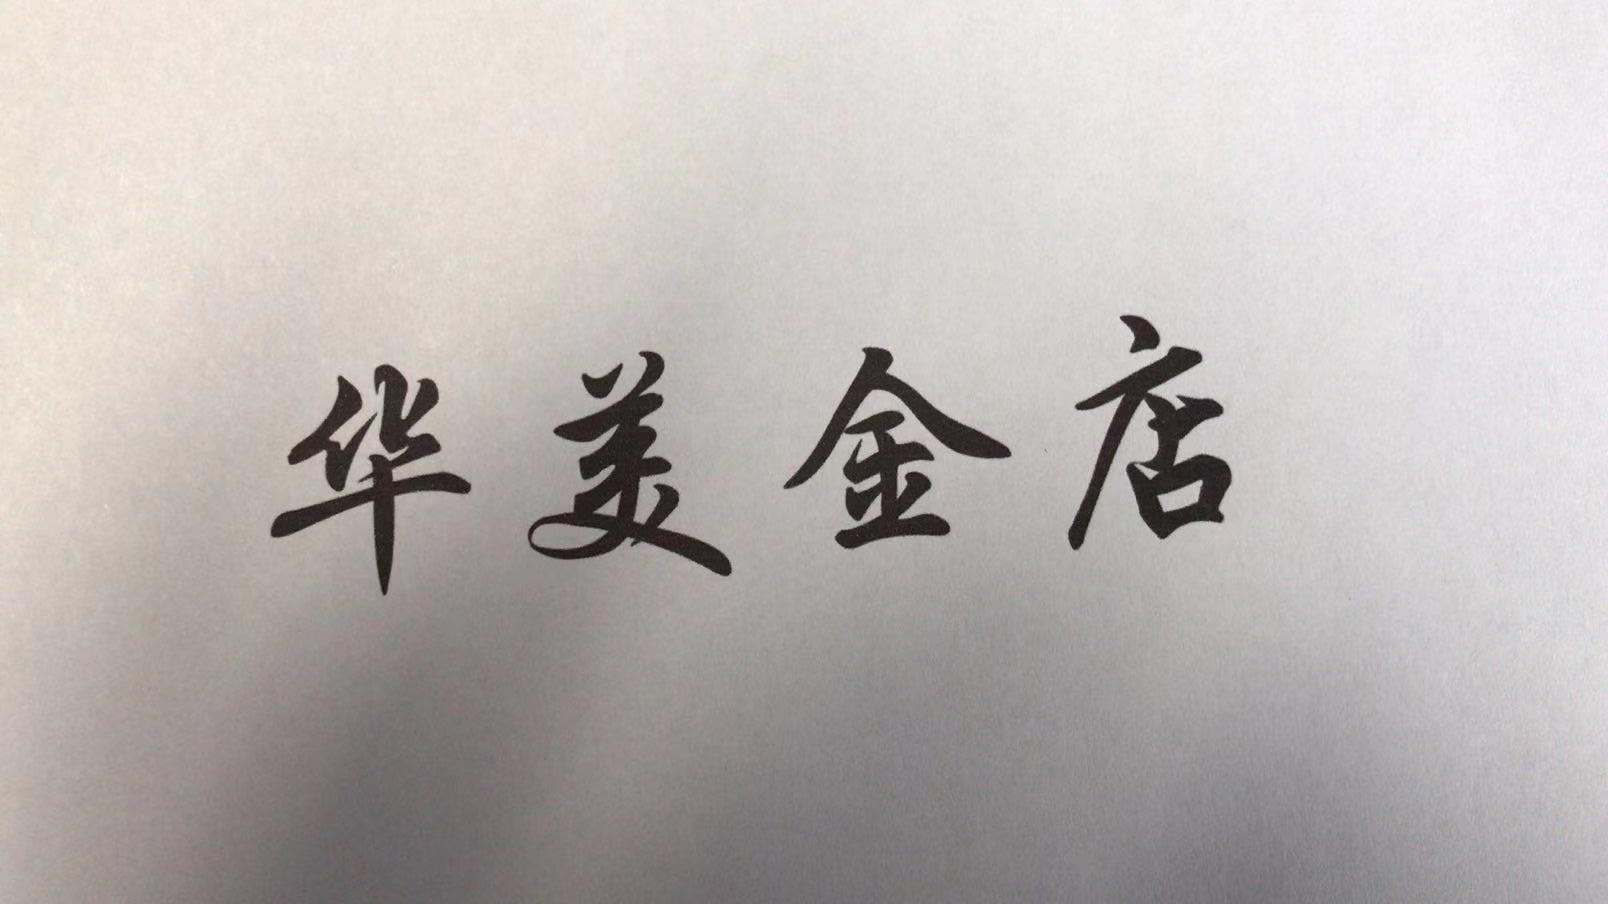 华美金店